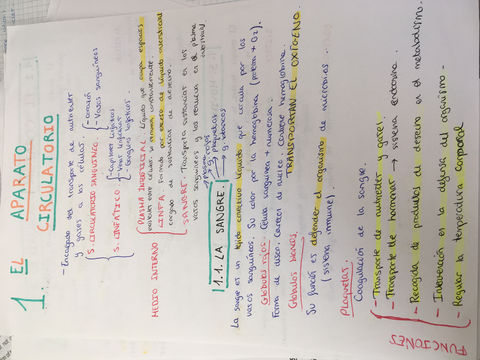 1. EL APARATO
CIRCULATORIO
- Encargado del transporte de nutrientes
y gases a las células.
S. CIRCULATORIO SANGUÍNEO
- Corazón
- Vasos sanguíneos
S. LINFÁTICO
- Capilares linfáticos
- Vasos linfáticos
- Ganglios linfáticos
MEDIO INTERNO
PLASMA INTERSTICIAL: Líquido que ocupa espacios
LINFA: formada por exceso de líquido intersticial
SANGRE: Transporta sustancias en los
vasos sanguíneos
1.1. LA SANGRE.
plaquetas
La sangre es un tejido conectivo líquido que circula por los
vasos sanguíneos. Su color por la hemoglobina (proteína + O2).
Glóbulos rojos: Célula sanguínea + numerosa.
Forma de disco. Carecen de núcleo. Contiene hemoglobina.
TRANSPORTAN EL OXÍGENO
Glóbulos blancos:
Su función es defender el organismo de microbios
(sistema inmune).
Plaquetas:
Coagulación de la sangre
FUNCIONES
- Transporte de nutrientes y gases.
- Transporte de hormonas → sistema endocrino.
- Recogida de productos de desecho en el metabolismo.
- Intervención en la defensa del organismo.
- Regular la temperatura corporal